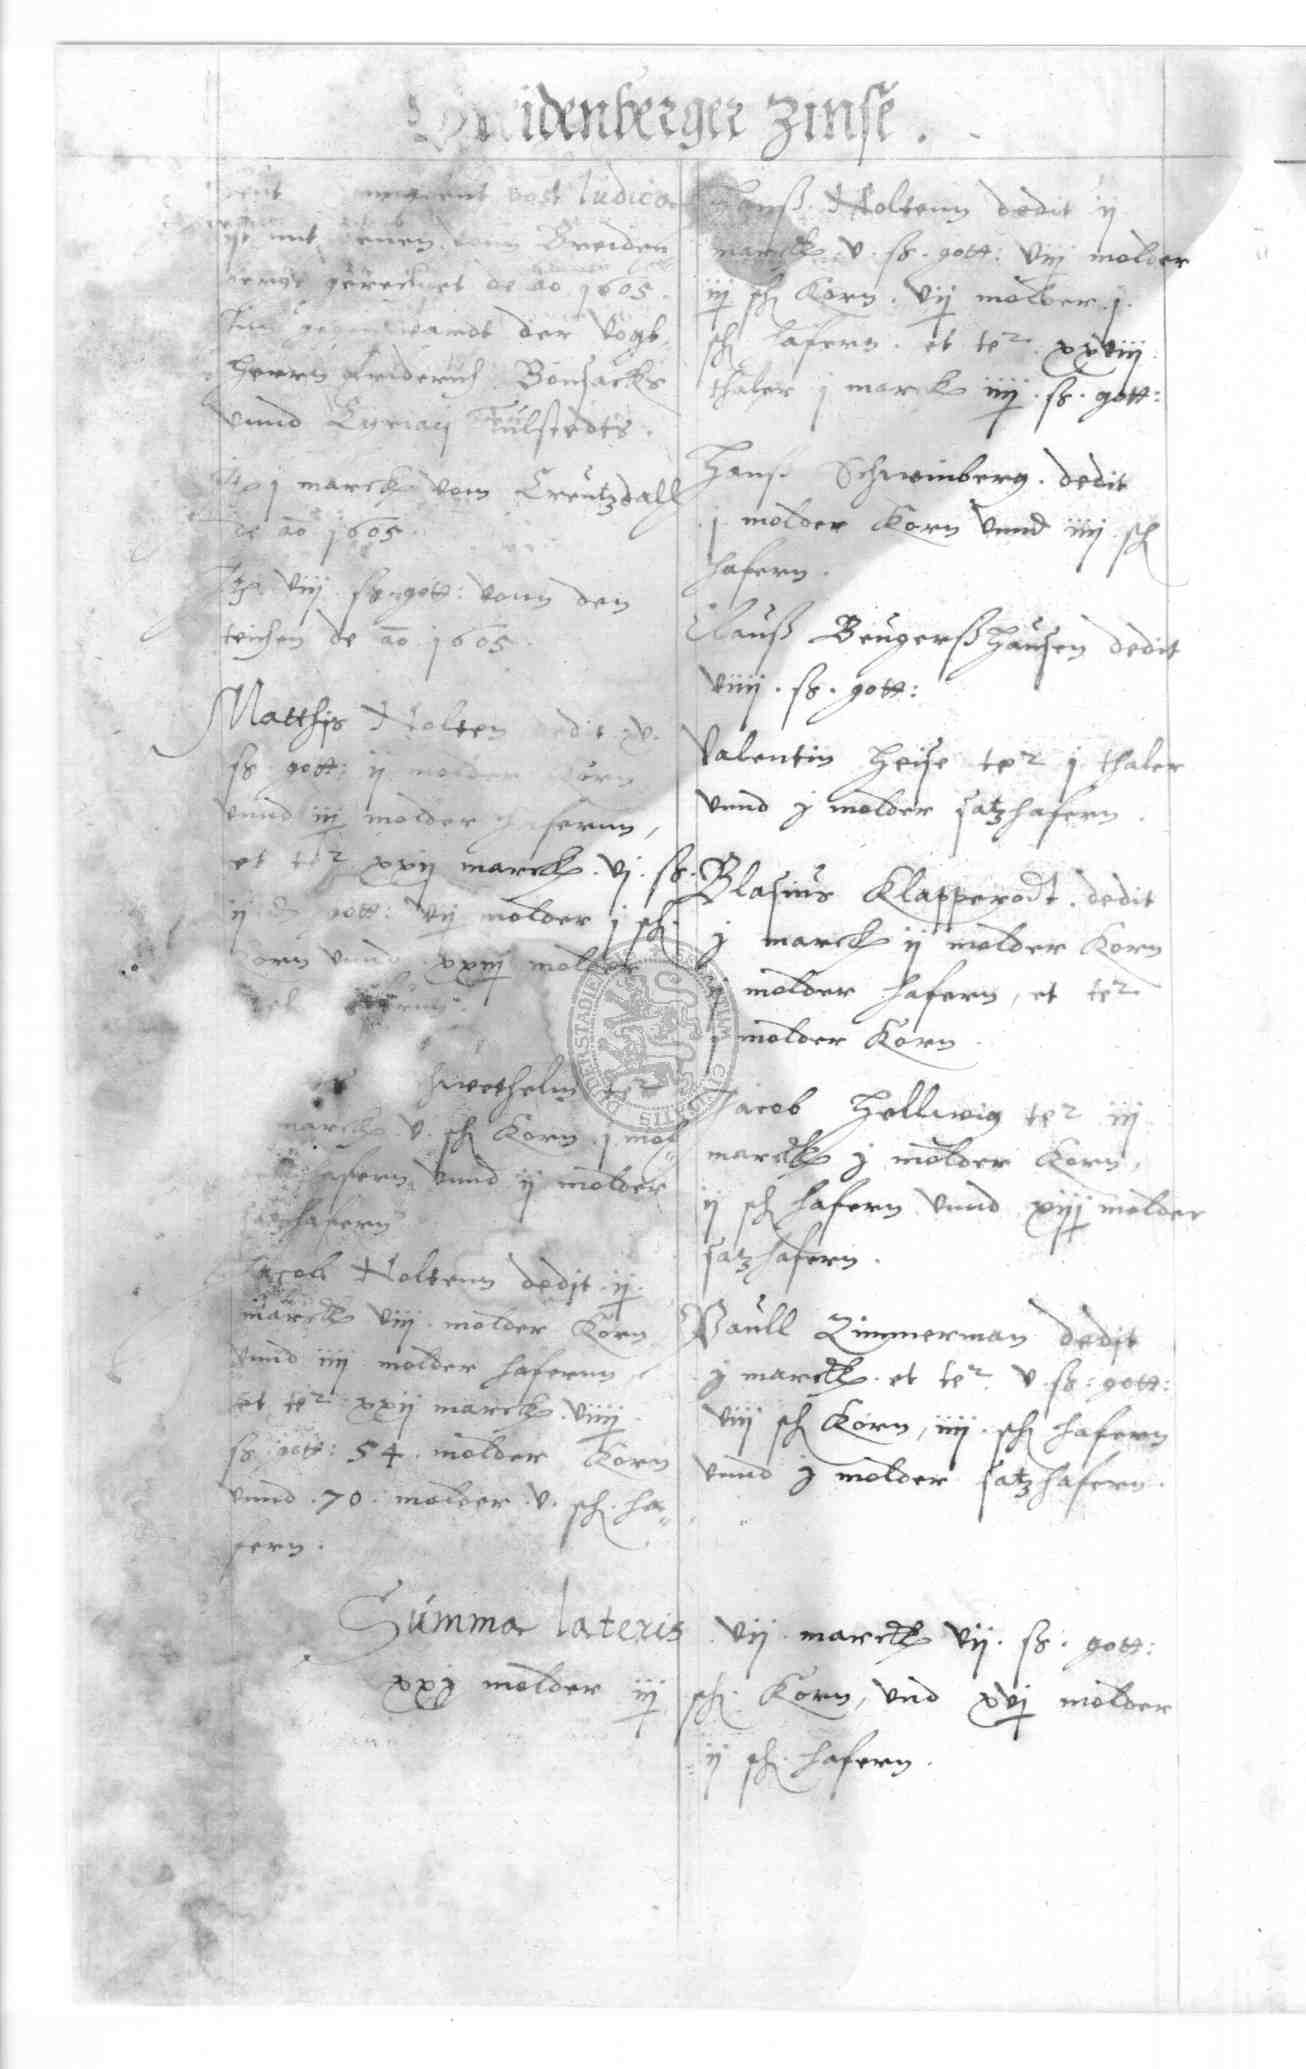 Breidenberger Zinse.
post Judica
ist mit denen vonn Breiden
bergk gerechnet de ao 1605.
Inn gegenwardt der Vögt
Herrn Friderich Bonsacks
vnnd Cyriaci Tülstedts.
It j marck vom Creützdall
de ao 1605.
It viij ß gott: vonn den
teichen de ao 1605.
Matthis Nolten dedit v
ß gott: ij molder Korn
vnnd iij molder hafernn,
et ter xxij marck. vj. ß.
ij gott: vij molder j sch.
Korn vnnd xxiij molder
ter
marck. v. sch Korn j mol
hafern vnnd ij molder
satzhafern
Jacob Noltenn dedit ij
marck viij molder Korn
vnnd iiij molder hafernn
et ter xxij marck. viiij
ß gott: 54. molder Korn
vnnd. 70. molder. v. sch. ha
fern.
Hanß Noltenn dedit ij
marck. v. ß. gott: viij molder
iij sch Korn. vij molder. j.
sch hafern. et ter xxviij
thaler j marck iiij. ß. gott:
Hanß Schwinberg. dedit
j molder Korn vnnd iiij sch
hafern.
Clauß Beügerßhaüsen dedit
viiij. ß. gott:
Valentin Heise ter j thaler
vnnd j molder satzhafern.
Blasius Klapperodt. dedit
j marck ij molder Korn
j molder hafern, et ter
j molder Korn
Jacob Hellwig ter iij
marck j molder Korn,
ij sch hafern vnnd xiij molder
satzhafern.
Paüll Zimmerman dedit
j marck. et ter v. ß. gott:
viij sch Korn, iiij. sch hafern
vnnd j molder satzhafern.
Summa lateris vij marck vij. ß. gott:
xxj molder iij sch. Korn, vnd xvj molder
ij sch. hafern.